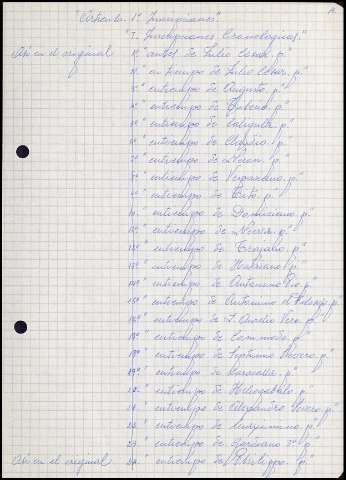 A.
"Articulo 1º Inscripciones"
"I. Inscripciones Cronologicas."
Asi en el original 1º "antes de Julio Cesar. p."
2º "en tiempo de Julio Cesar. p."
3º " en tiempo de Augusto. p."
4º " en tiempo de Tiberio. p."
5º " en tiempo de Caligula. p."
6º " en tiempo de Claudio. p."
7º " en tiempo de Neron. p."
8º " en tiempo de Vespasiano. p."
9º " en tiempo de Tito. p."
10. " en tiempo de Domiciano. p."
11º " en tiempo de Nerva. p."
12º " en tiempo de Trajano. p."
13º " en tiempo de Hadriano. p."
14º " en tiempo de Antonino Pio. p."
15º " en tiempo de Antonino el Filosofo. p."
16º " en tiempo de L. Aurelio Vero. p."
17º " en tiempo de Commodo. p."
18º " en tiempo de Septimio Severo. p."
19º " en tiempo de Caracalla. p."
20. " en tiempo de Heliogabalo. p."
21. " en tiempo de Alejandro Severo. p."
22. " en tiempo de Maximino. p."
23. " en tiempo de Gordiano 3º p."
Asi en el original 24. " en tiempo de Philippo. p."